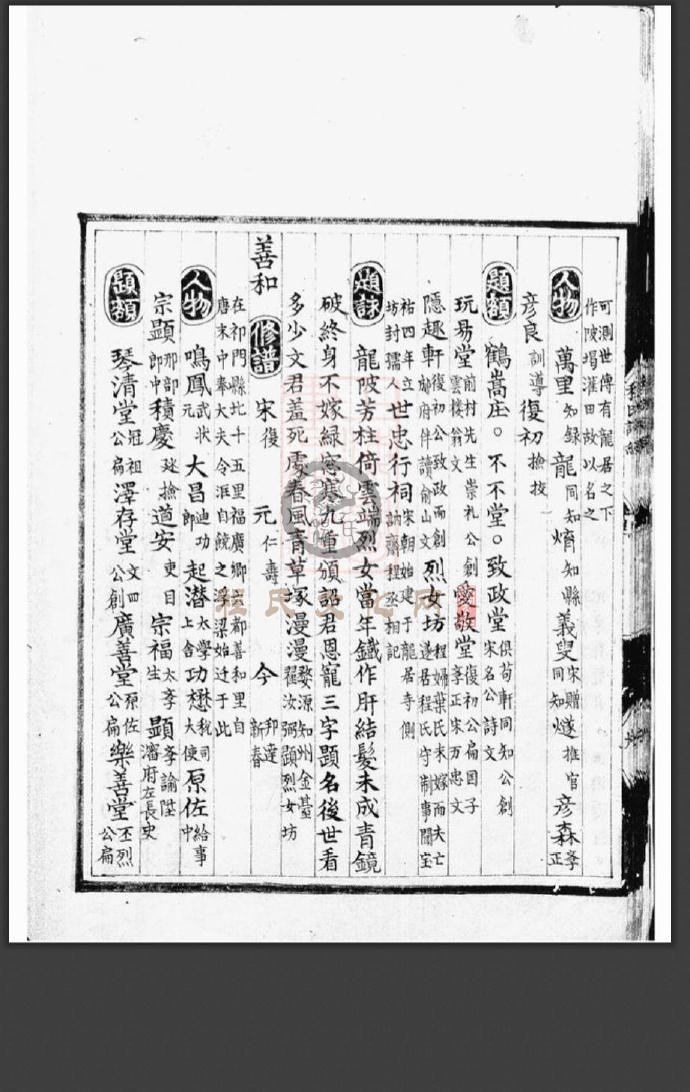 可測世傳有龍居之下
作陂堨溉田故以名之
人物 萬里知錄 龍同知 熕知縣 義叟宋贈同知 燧推官 彥森學正
彥良訓導 復初撿技
題額 鶴嵩庄。不不堂。致政堂俱荀軒同知公創宋名公詩文
玩易堂前村先生崇礼公創雲樓翁文 愛敬堂復初公扁国子李正宋万忠文
隱趣軒復初公致政而創 府伴讀俞山文 烈女坊程婦葉氏未嫁而夫亡遂居程氏守制事聞宝
祐四年立
坊封孺人 世忠行祠宋朝始建于龍居寺側訥齋程丞相記
題詠 龍陂芳柱倚雲端烈女當年鐵作肝結髮未成青鏡
破終身不嫁綠窓寒九重頒詔君恩寵三字題名後世看
多少文君羞死處春風青草塚漫漫婺源知州金臺翟汝弼題烈女坊
善和 修譜 宋復 元仁壽 今邦達新春
在祁門縣北十五里福廣鄉 都善和里自
唐末中奉大夫令洭自饒之浮梁始迁于此
人物 鳴鳳武狀元 大昌迪功郎 起潛太學上舍 功懋稅司大使 原佐給事中
宗顕刑部郎中 積慶廵撿 道安吏目 宗福太孝生 顕孝諭陞瀋府左長史
題額 琴清堂冠祖公扁 澤存堂文四公創 廣善堂原佐公扁 樂善堂丕烈公扁